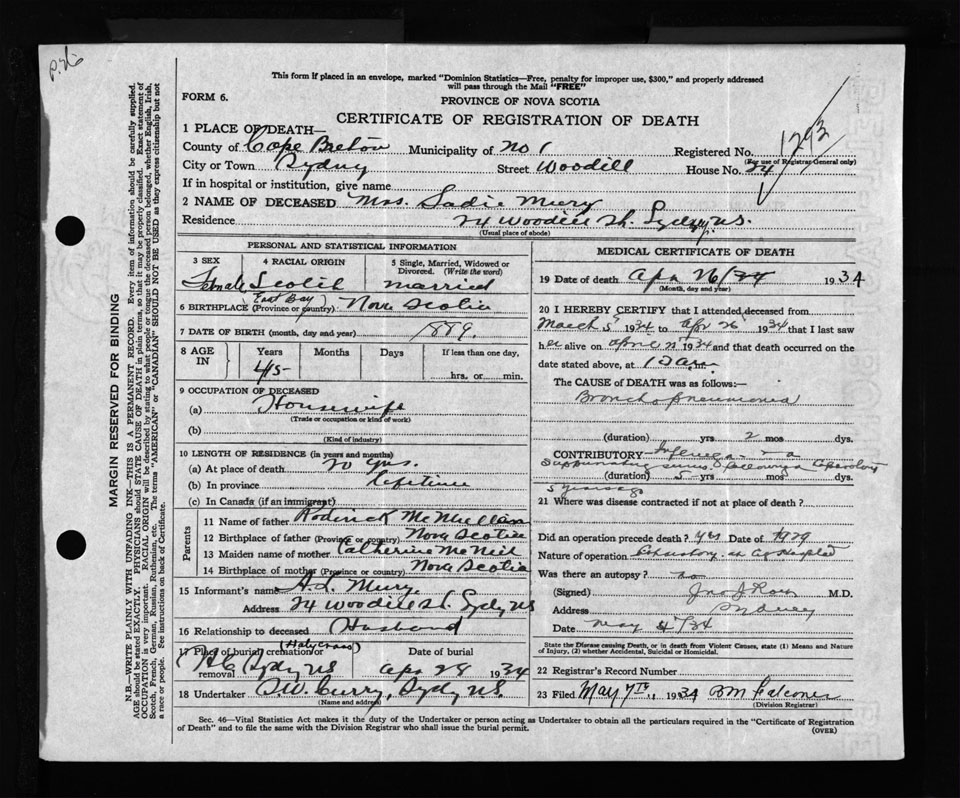 This form if placed in an envelope, marked "Dominion Statistics—Free, penalty for improper use, $300," and properly addressed
will pass through the Mail "FREE"
FORM 6.
PROVINCE OF NOVA SCOTIA
CERTIFICATE OF REGISTRATION OF DEATH
1293
1 PLACE OF DEATH—
County of Cape Breton Municipality of No 1 Registered No.
(For use of Registrar General only)
City or Town Sydney Street Woodill House No. 24
If in hospital or institution, give name
2 NAME OF DECEASED Mrs. Sadie
Residence 24 St. Sydney, N.S.
(Usual place of abode)
PERSONAL AND STATISTICAL INFORMATION
3 SEX 4 RACIAL ORIGIN 5 Single, Married, Widowed or Divorced. (Write the word)
Female Scotch married
6 BIRTHPLACE (Province or country) (East Bay) Nova Scotia
7 DATE OF BIRTH (month, day and year) 1889.
8 AGE IN Years Months Days If less than one day,
45 hrs. or min.
9 OCCUPATION OF DECEASED
(a) Housewife
(Trade or occupation or kind of work)
(b)
(Kind of industry)
10 LENGTH OF RESIDENCE (in years and months)
(a) At place of death 20 yrs.
(b) In province Lifetime
(c) In Canada (if an immigrant)
Parents
11 Name of father Roderick McMullan
12 Birthplace of father (Province or country) Nova Scotia
13 Maiden name of mother Catherine McNeil
14 Birthplace of mother (Province or country) Nova Scotia
15 Informant's name
Address 24 St. Sydy NS
16 Relationship to deceased Husband
17 Place of burial cremation or removal (Holy Cross) Date of burial
H.C. Sydy NS Apr 28 1934
18 Undertaker Curry, Sydy, N.S.
(Name and address)
MEDICAL CERTIFICATE OF DEATH
19 Date of death Apr 26/34 1934
(Month, day and year)
20 I HEREBY CERTIFY that I attended deceased from
March 5 1934 to Apr 26 1934 that I last saw
her alive on April 1934 and that death occurred on the
date stated above, at m.
The CAUSE of DEATH was as follows:—
Broncho pneumonia
(duration) yrs. 2 mos. dys.
CONTRIBUTORY Influenza
Suppurating sinus following
(duration) 5 yrs. mos. dys.
5 years ago
21 Where was disease contracted if not at place of death?
Did an operation precede death? yes Date of 1929
Nature of operation Hospital
Was there an autopsy? no
(Signed) M.D.
Address Sydney
Date May 4/34
State the Disease causing Death, or in death from Violent Causes, state (1) Means and Nature
of Injury, (2) whether Accidental, Suicidal or Homicidal.
22 Registrar's Record Number
23 Filed May 7th, 1934 Falconer
(Division Registrar)
Sec. 46—Vital Statistics Act makes it the duty of the Undertaker or person acting as Undertaker to obtain all the particulars required in the "Certificate of Registration
of Death" and to file the same with the Division Registrar who shall issue the burial permit.
(OVER)
MARGIN RESERVED FOR BINDING
N.B.—WRITE PLAINLY WITH UNFADING INK—THIS IS A PERMANENT RECORD. Every item of information should be carefully supplied.
AGE should be stated EXACTLY. PHYSICIANS should STATE CAUSE OF DEATH in plain terms, so that it may be properly classified. Exact statement of
OCCUPATION is very important. RACIAL ORIGIN will be described by stating to what people or tongue the deceased person belonged, whether English, Irish,
Scotch, French, German, Russian, Ruthenian, etc. The terms "AMERICAN" or "CANADIAN" SHOULD NOT BE USED as they express citizenship but not
a race or people. See instructions on back of Certificate.